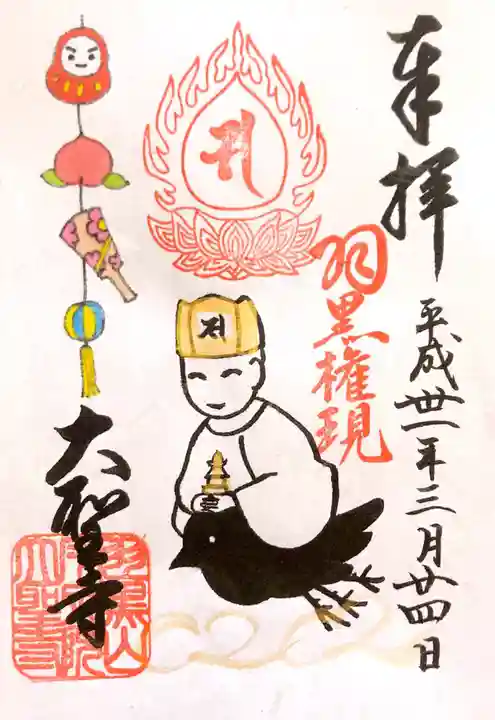 奉拝
平成卅一年三月廿四日
羽黒権現
大聖寺